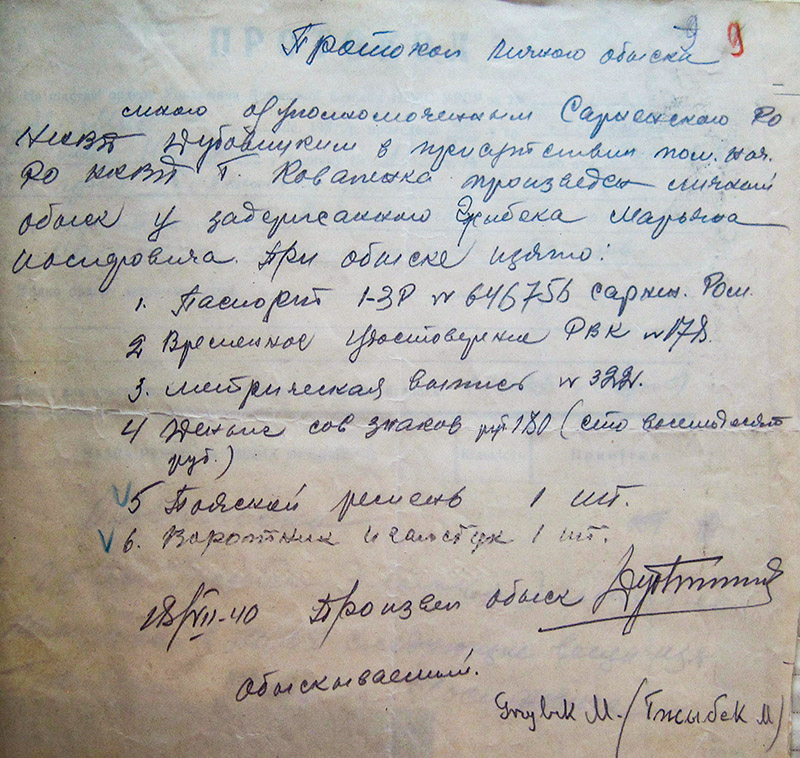 9 9
Протокол личного обыска
мною о/уполномоченным Сарненского РО
НКВД Дубовицким в присутствии пом. нач.
РО НКВД т. Коваленко произведен личный
обыск у задержанного Гжыбека Марьяна
Иосифовича. При обыске изъято:
1. Паспорт 1-ЗР № 646756 сарнен. Ром.
2 Временное удостоверение РВК № 178.
3. метрическая выпись № 322.
4 Деньги сов знаков руб 180 (сто восемьдесят
руб.)
5 Поясной ремень 1 шт.
6. Воротник и галстук 1 шт.
28/VII-40 Произвел обыск
Обыскиваемый.
Grzybek M. (Гжыбек М)